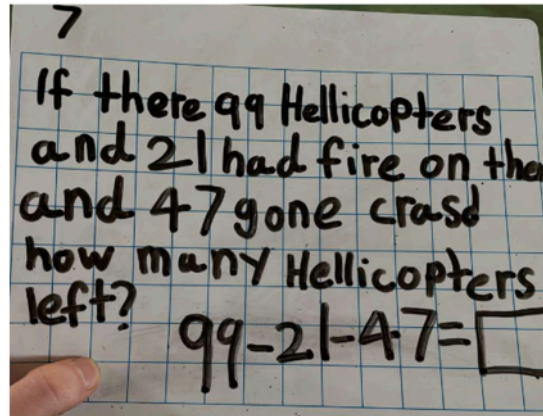 7
If there 99 Hellicopters
and 21 had fire on the
and 47 gone crasd
how many Hellicopters
left?
99-21-47=